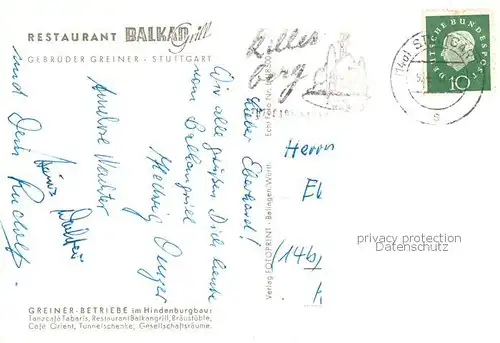 RESTAURANT BALKAN Grill
GEBRÜDER GREINER - STUTTGART
Lieber Eberhard!
Wir alle grüßen Dich heute
vom Balkangrill
Hellwig
Annelore
Heinz
und Dein Rudolf
GREINER-BETRIEBE im Hindenburgbau:
Tanzcafé Tabaris, Restaurant Balkangrill, Bräustüble,
Café Orient, Tunnelschenke, Gesellschaftsräume.
Verlag FOTOPRINT - Balingen/Württ.
Echt Foto Nr.
Killes
berg
DEUTSCHE BUNDESPOST
10
Herrn
(14b)
privacy protection
Datenschutz